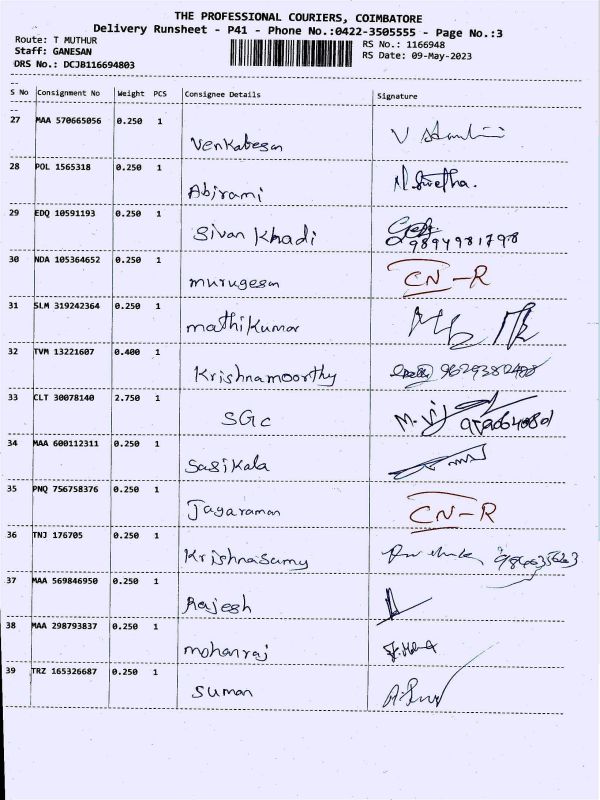 THE PROFESSIONAL COURIERS, COIMBATORE
Delivery Runsheet - P41 - Phone No.:0422-3505555 - Page No.:3
Route: T MUTHUR
RS No.: 1166948
Staff: GANESAN
RS Date: 09-May-2023
DRS No.: DCJB116694803
S No Consignment No Weight PCS Consignee Details Signature
27 MAA 570665056 0.250 1 Venkatesan V
28 POL 1565318 0.250 1 Abirami N Swetha.
29 EDQ 10591193 0.250 1 Sivan Khadi 9894981798
30 NDA 105364652 0.250 1 murugesan CN-R
31 SLM 319242364 0.250 1 mathikumar
32 TVM 13221607 0.400 1 Krishnamoorthy
33 CLT 30078140 2.750 1 SGC M. Vij
34 MAA 600112311 0.250 1 Sasikala
35 PNQ 756758376 0.250 1 Jayaraman CN-R
36 TNJ 176705 0.250 1 Krishnasamy
37 MAA 569846950 0.250 1 Rajesh
38 MAA 298793837 0.250 1 mohanraj
39 TRZ 165326687 0.250 1 Suman